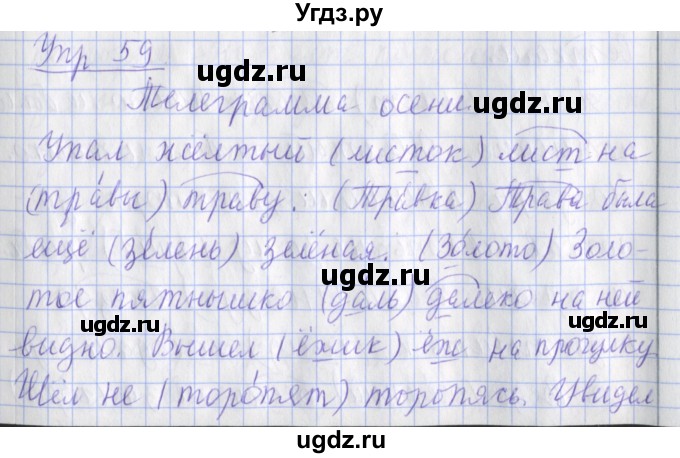 Угдз.ру
Упр 59
ugdz.ru
Телеграмма осени.
ugdz.ru
Упал жёлтый (листок) лист на
(тра́вы) траву. (Тра́вка) Трава была
ugdz.ru
ещё (зе́лень) зелёная. (Зо́лото) Золо-
ugdz.ru
тое пятнышко (даль) далеко на ней
ugdz.ru
ugdz.ru
видно. Вышел (ёжик) ёж на прогулку
Шёл не (торо́пят) торопясь. Увидел
ugdz.ru